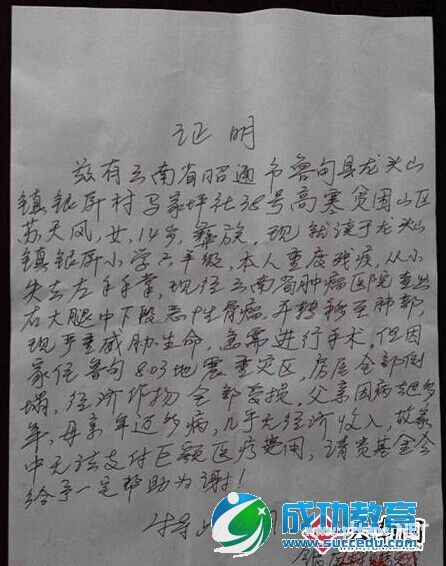 证明
兹有云南省昭通市鲁甸县龙头山
镇银屏村马家坪社38号高寒贫困山区
苏天凤，女，14岁，彝族，现就读于龙头山
镇银屏小学二年级，本人重度残疾，从小
失去左手手掌，现经云南省肿瘤医院查出
右大腿中下段恶性骨瘤，并转移至肺部，
现严重威胁生命，急需进行手术，但因
家住鲁甸803地震重灾区，房屋全部倒
塌，经济作物全部毁损，父亲因病去世多
年，母亲年迈多病，几乎无经济收入，故家
中无法支付巨额医疗费用，请贵基金会
给予一定帮助为谢！
成功教育
www.succedu.com